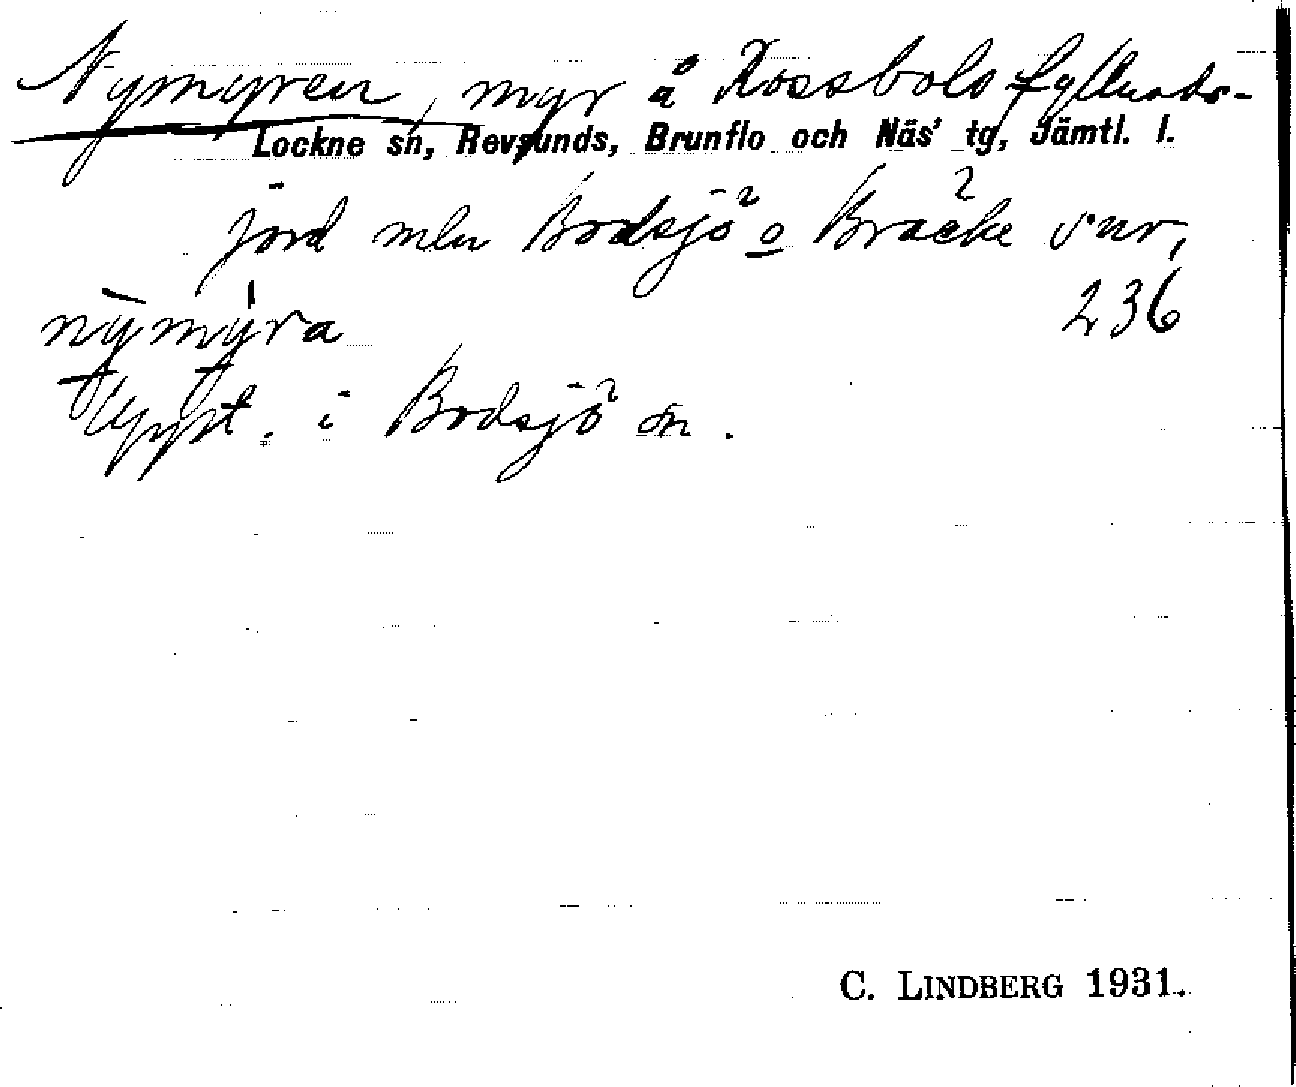 Nymyren, myr å Rossbols fyllnads-
Lockne sn, Revsunds, Brunflo och Näs' tg, Jämtl. l.
jord mln Bodsjö o Bräcke snr,
nỳmýra 236
Uppt. i Bodsjö sn.
C. LINDBERG 1931.